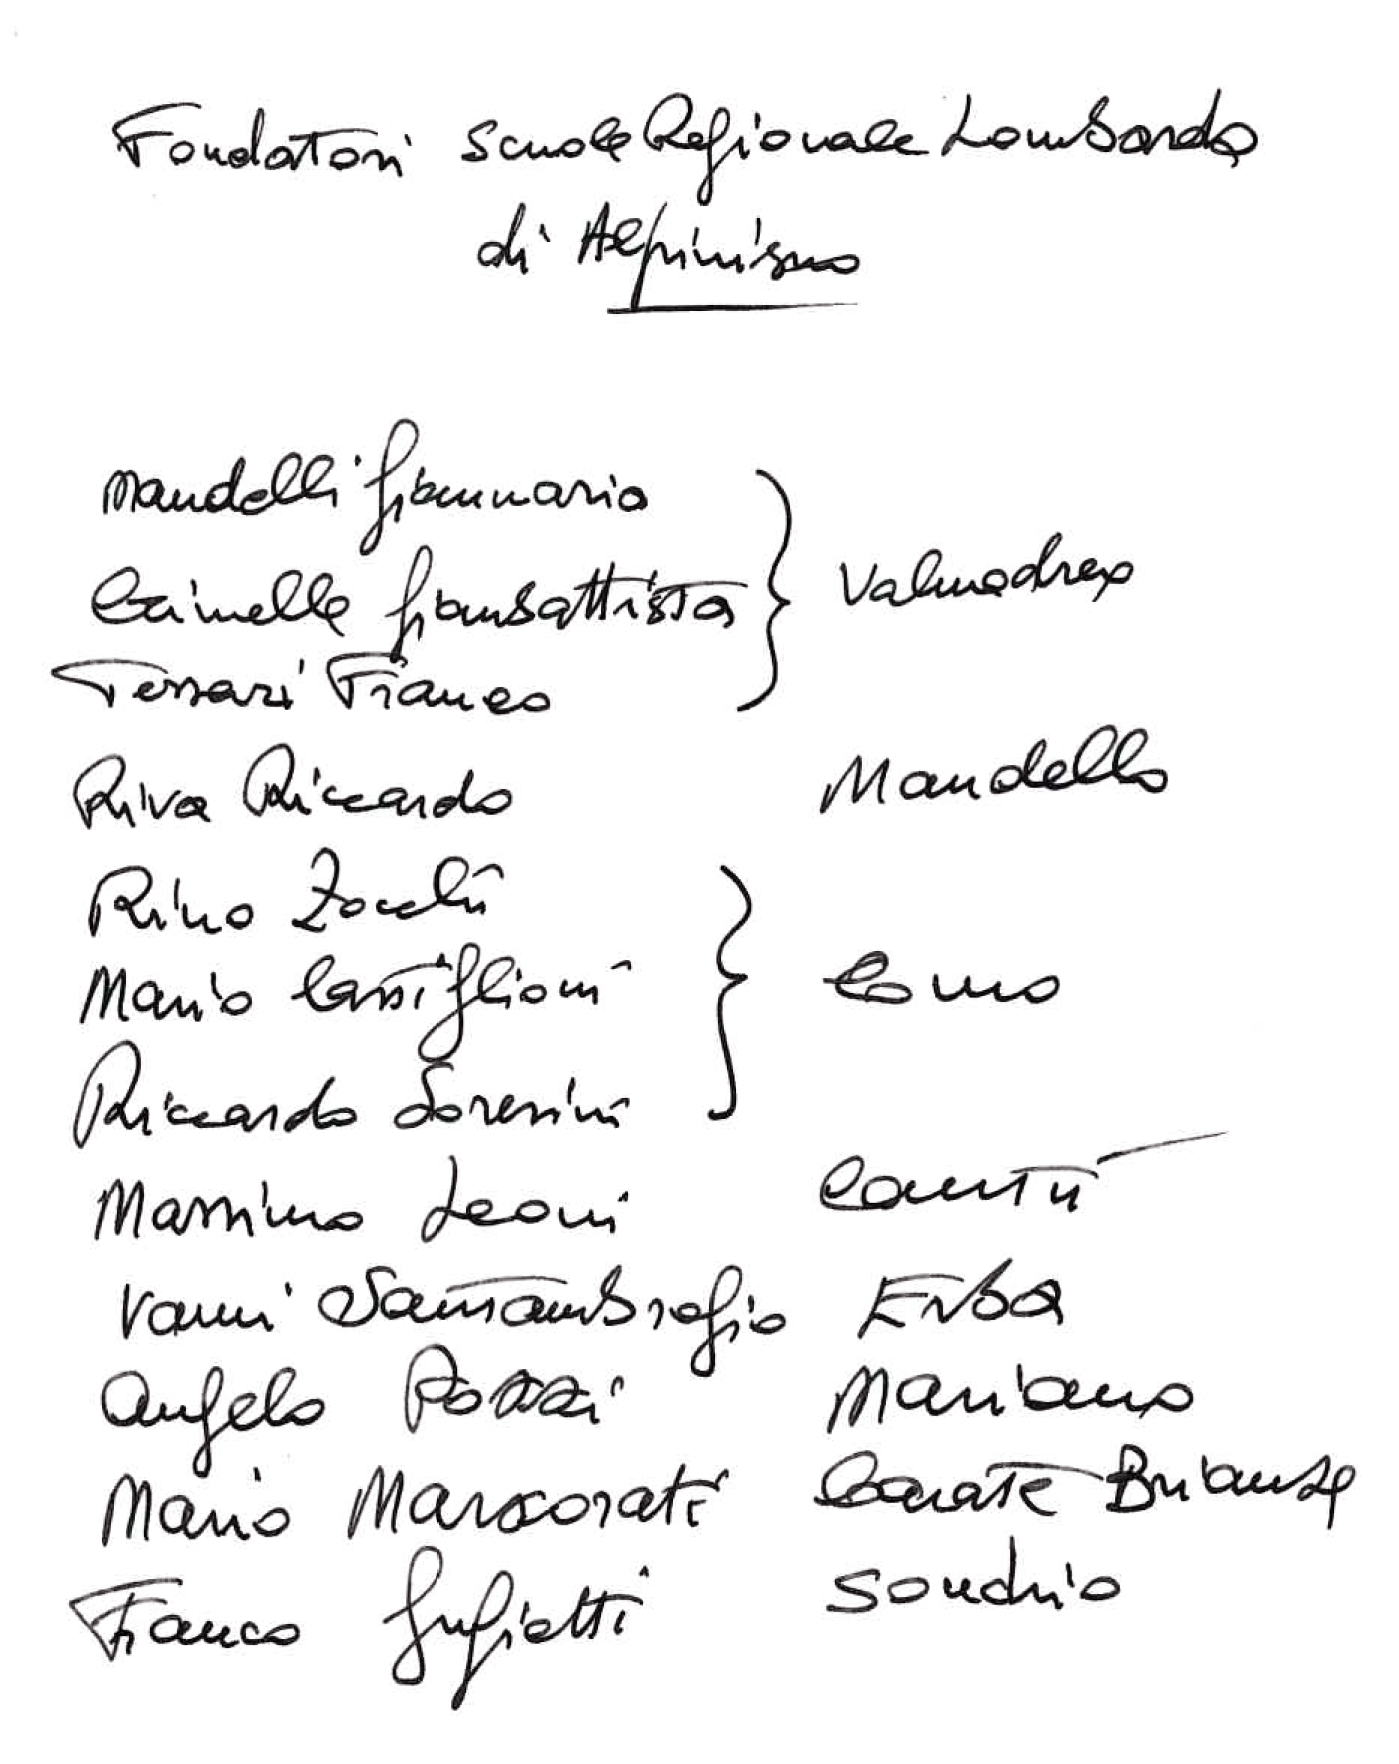 Fondatori Scuola Regionale Lombarda
di Alpinismo
Mandelli Gianmaria
Crimella Giambattista
Valmadrera
Tessari Franco
Riva Riccardo Mandello
Rino Zocchi
Mario Castiglioni Como
Riccardo Soresini
Massimo Leoni Cantù
Vanni Santambrogio Erba
Angelo Pozzi Mariano
Mario Marzorati Carate Brianza
Franco Gugiatti Sondrio